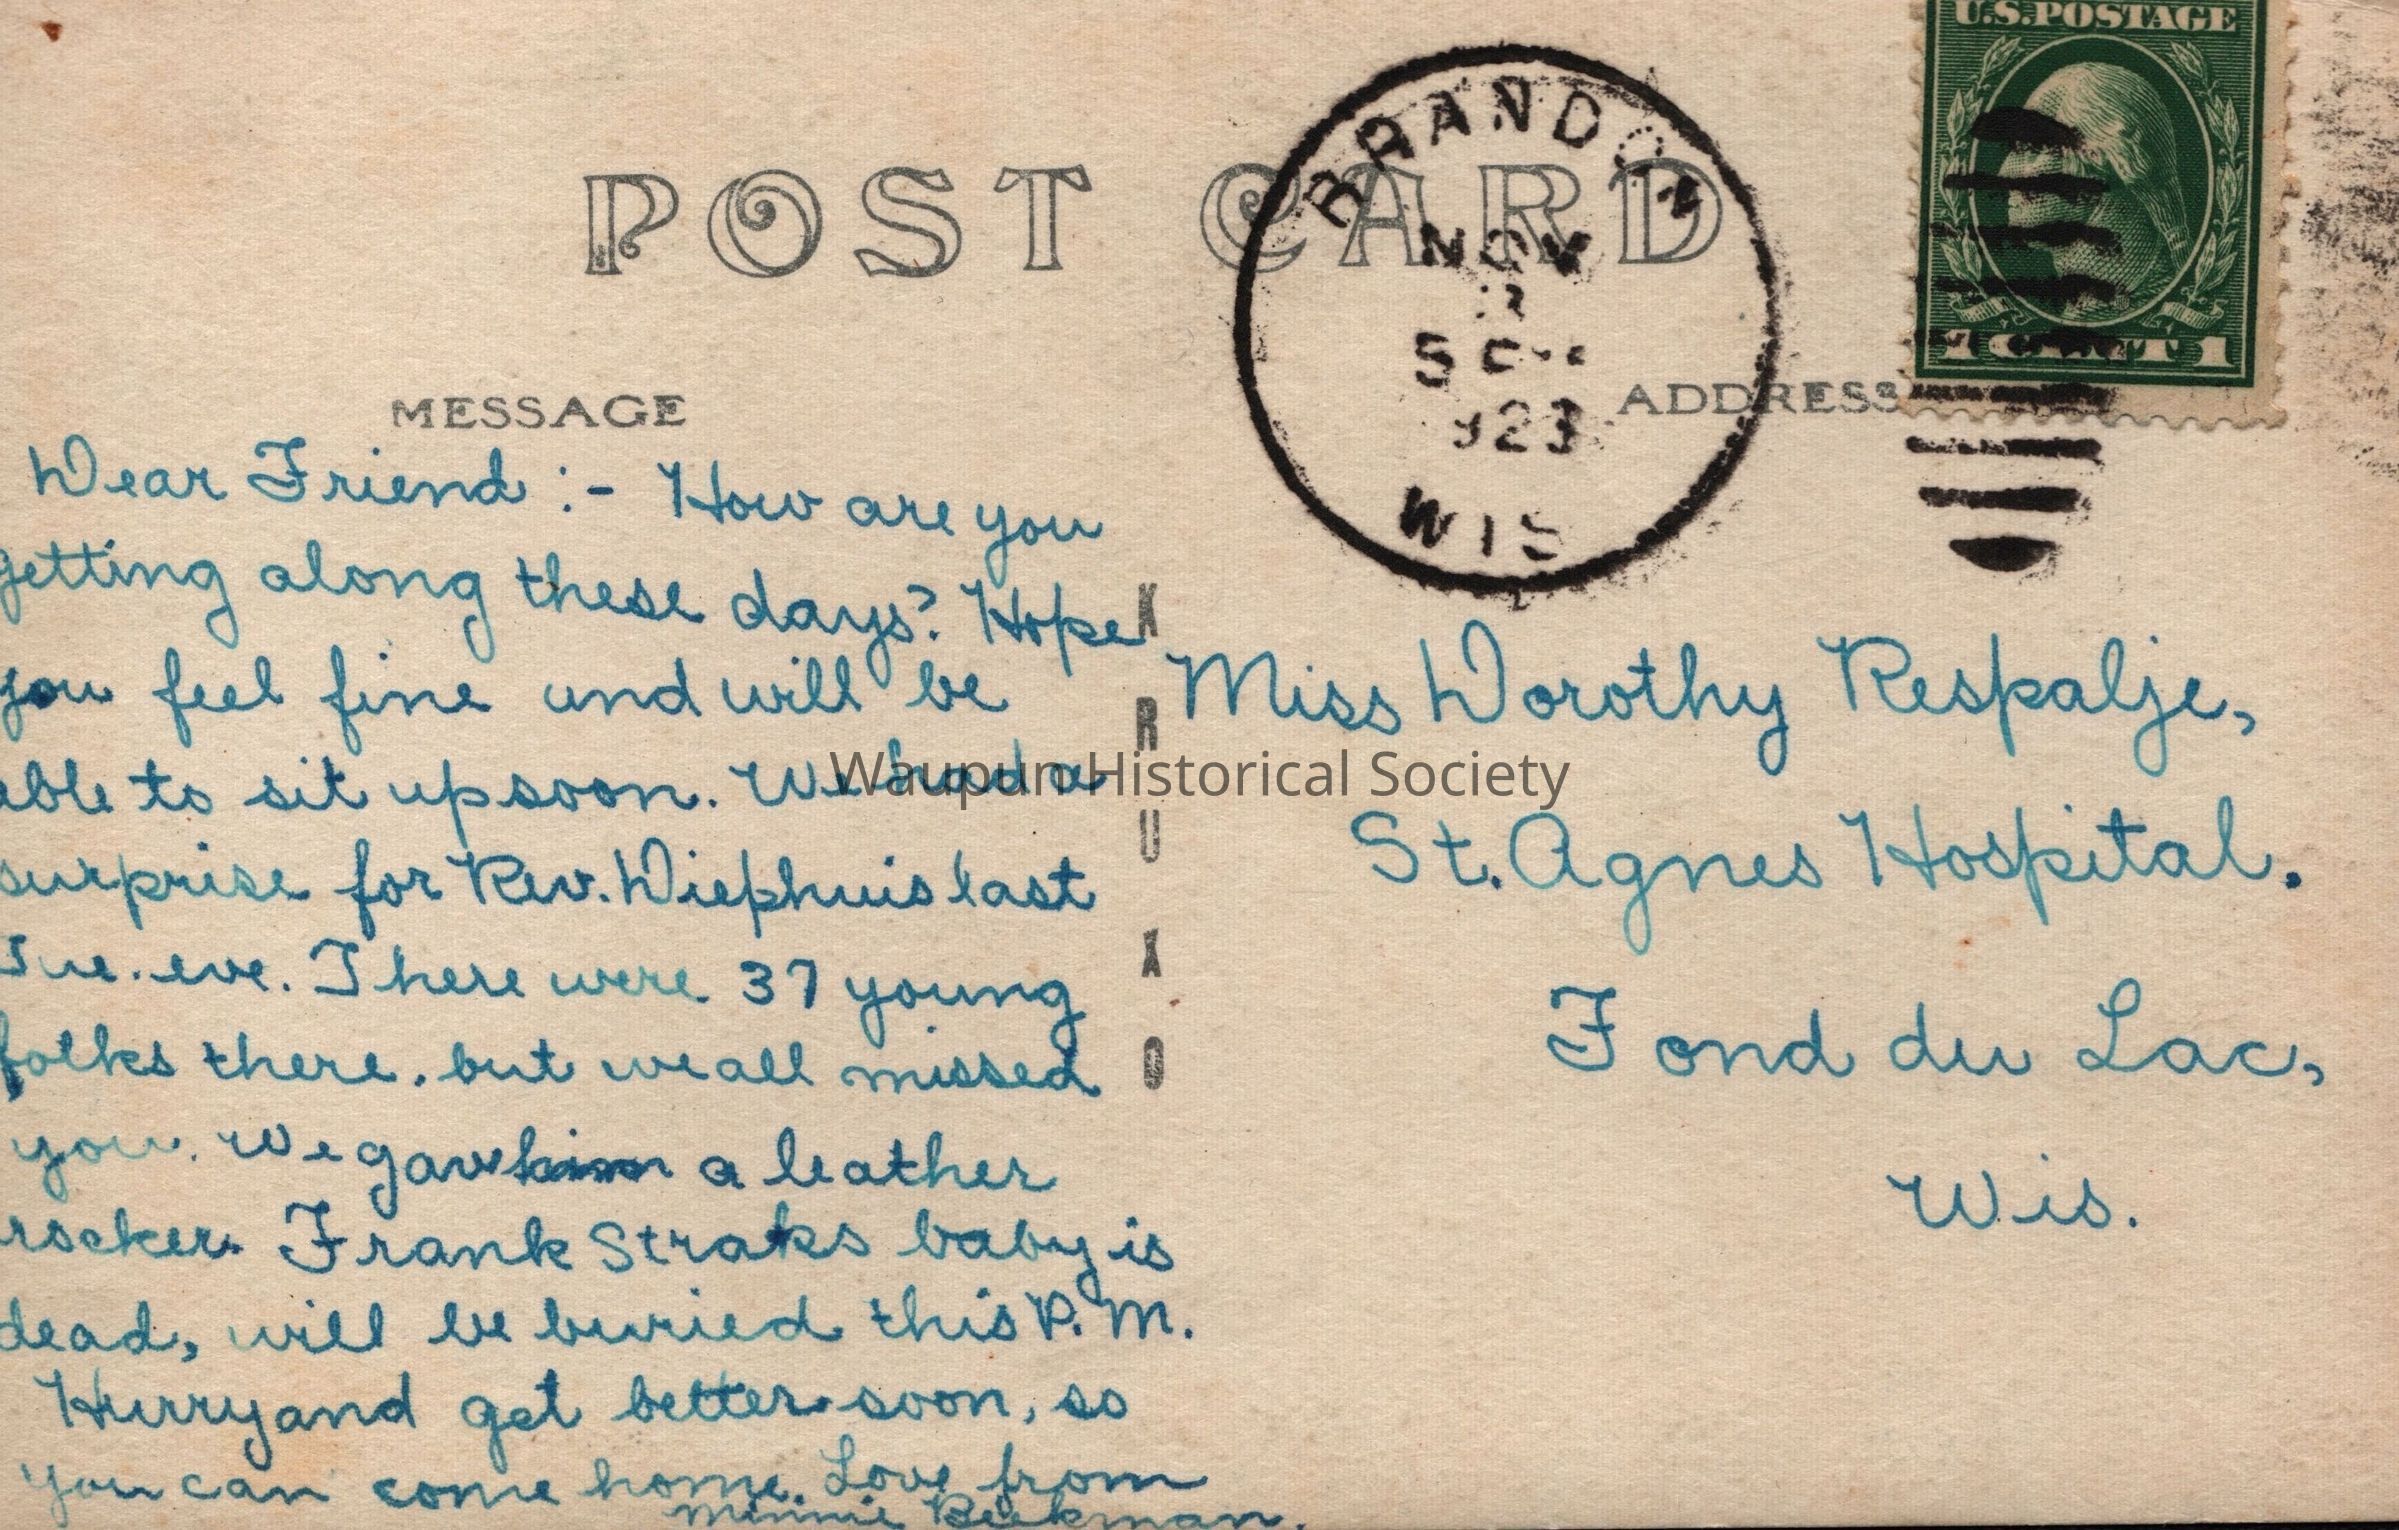 U.S.POSTAGE
1 CENT 1
BRANDON
NOV
3
923
WIS
POST CARD
MESSAGE
ADDRESS
Dear Friend :- How are you
getting along these days? Hope
you feel fine and will be
able to sit up soon. We had a
surprise for Rev. Diephuis last
Tue. eve. There were 37 young
folks there. but we all missed
you. We gave him a leather
rocker. Frank Straks baby is
dead, will be buried this P.M.
Hurry and get better soon, so
you can come home. Love from
Minnie Beekman.
KRUXO
Miss Dorothy Respalje,
St. Agnes Hospital.
Fond du Lac,
Wis.
Waupun Historical Society